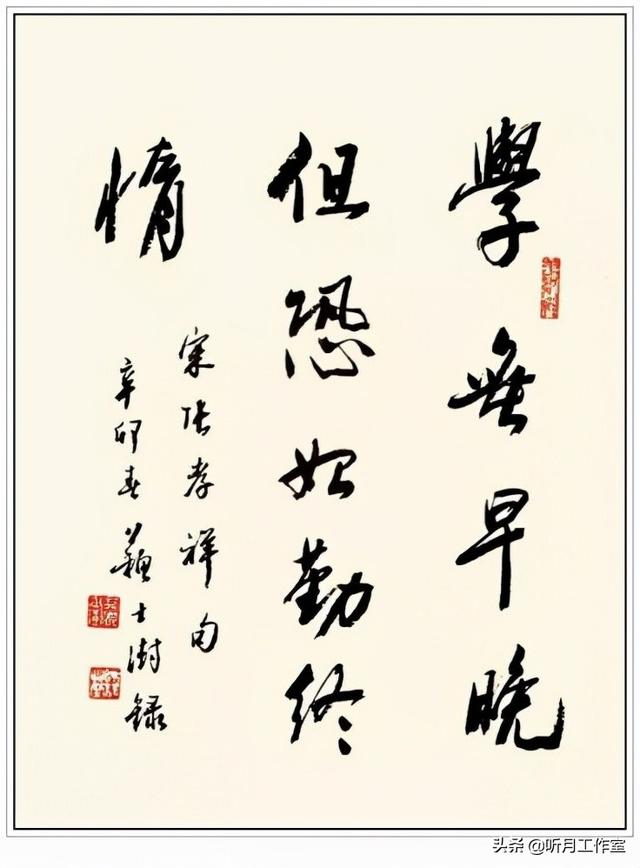 學無早晚
但恐始勤終
惰
宋張孝祥句
辛卯春蘇士澍錄
头条 @听月工作室